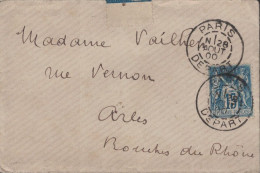 Madame Vailhe
rue Vernon
Arles
Bouches du Rhône
PARIS
28
AOUT
00
DEPART
DEPART